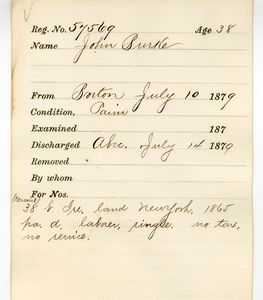 Reg. No. 57569 Age 38
Name John Burke
From Boston July 10 1879
Condition, Pain
Examined 187
Discharged Abs. July 14 1879
Removed
By whom
For Nos.
38 b Ire. land New York, 1865
pa. d. laborer, single. no tax,
no service.